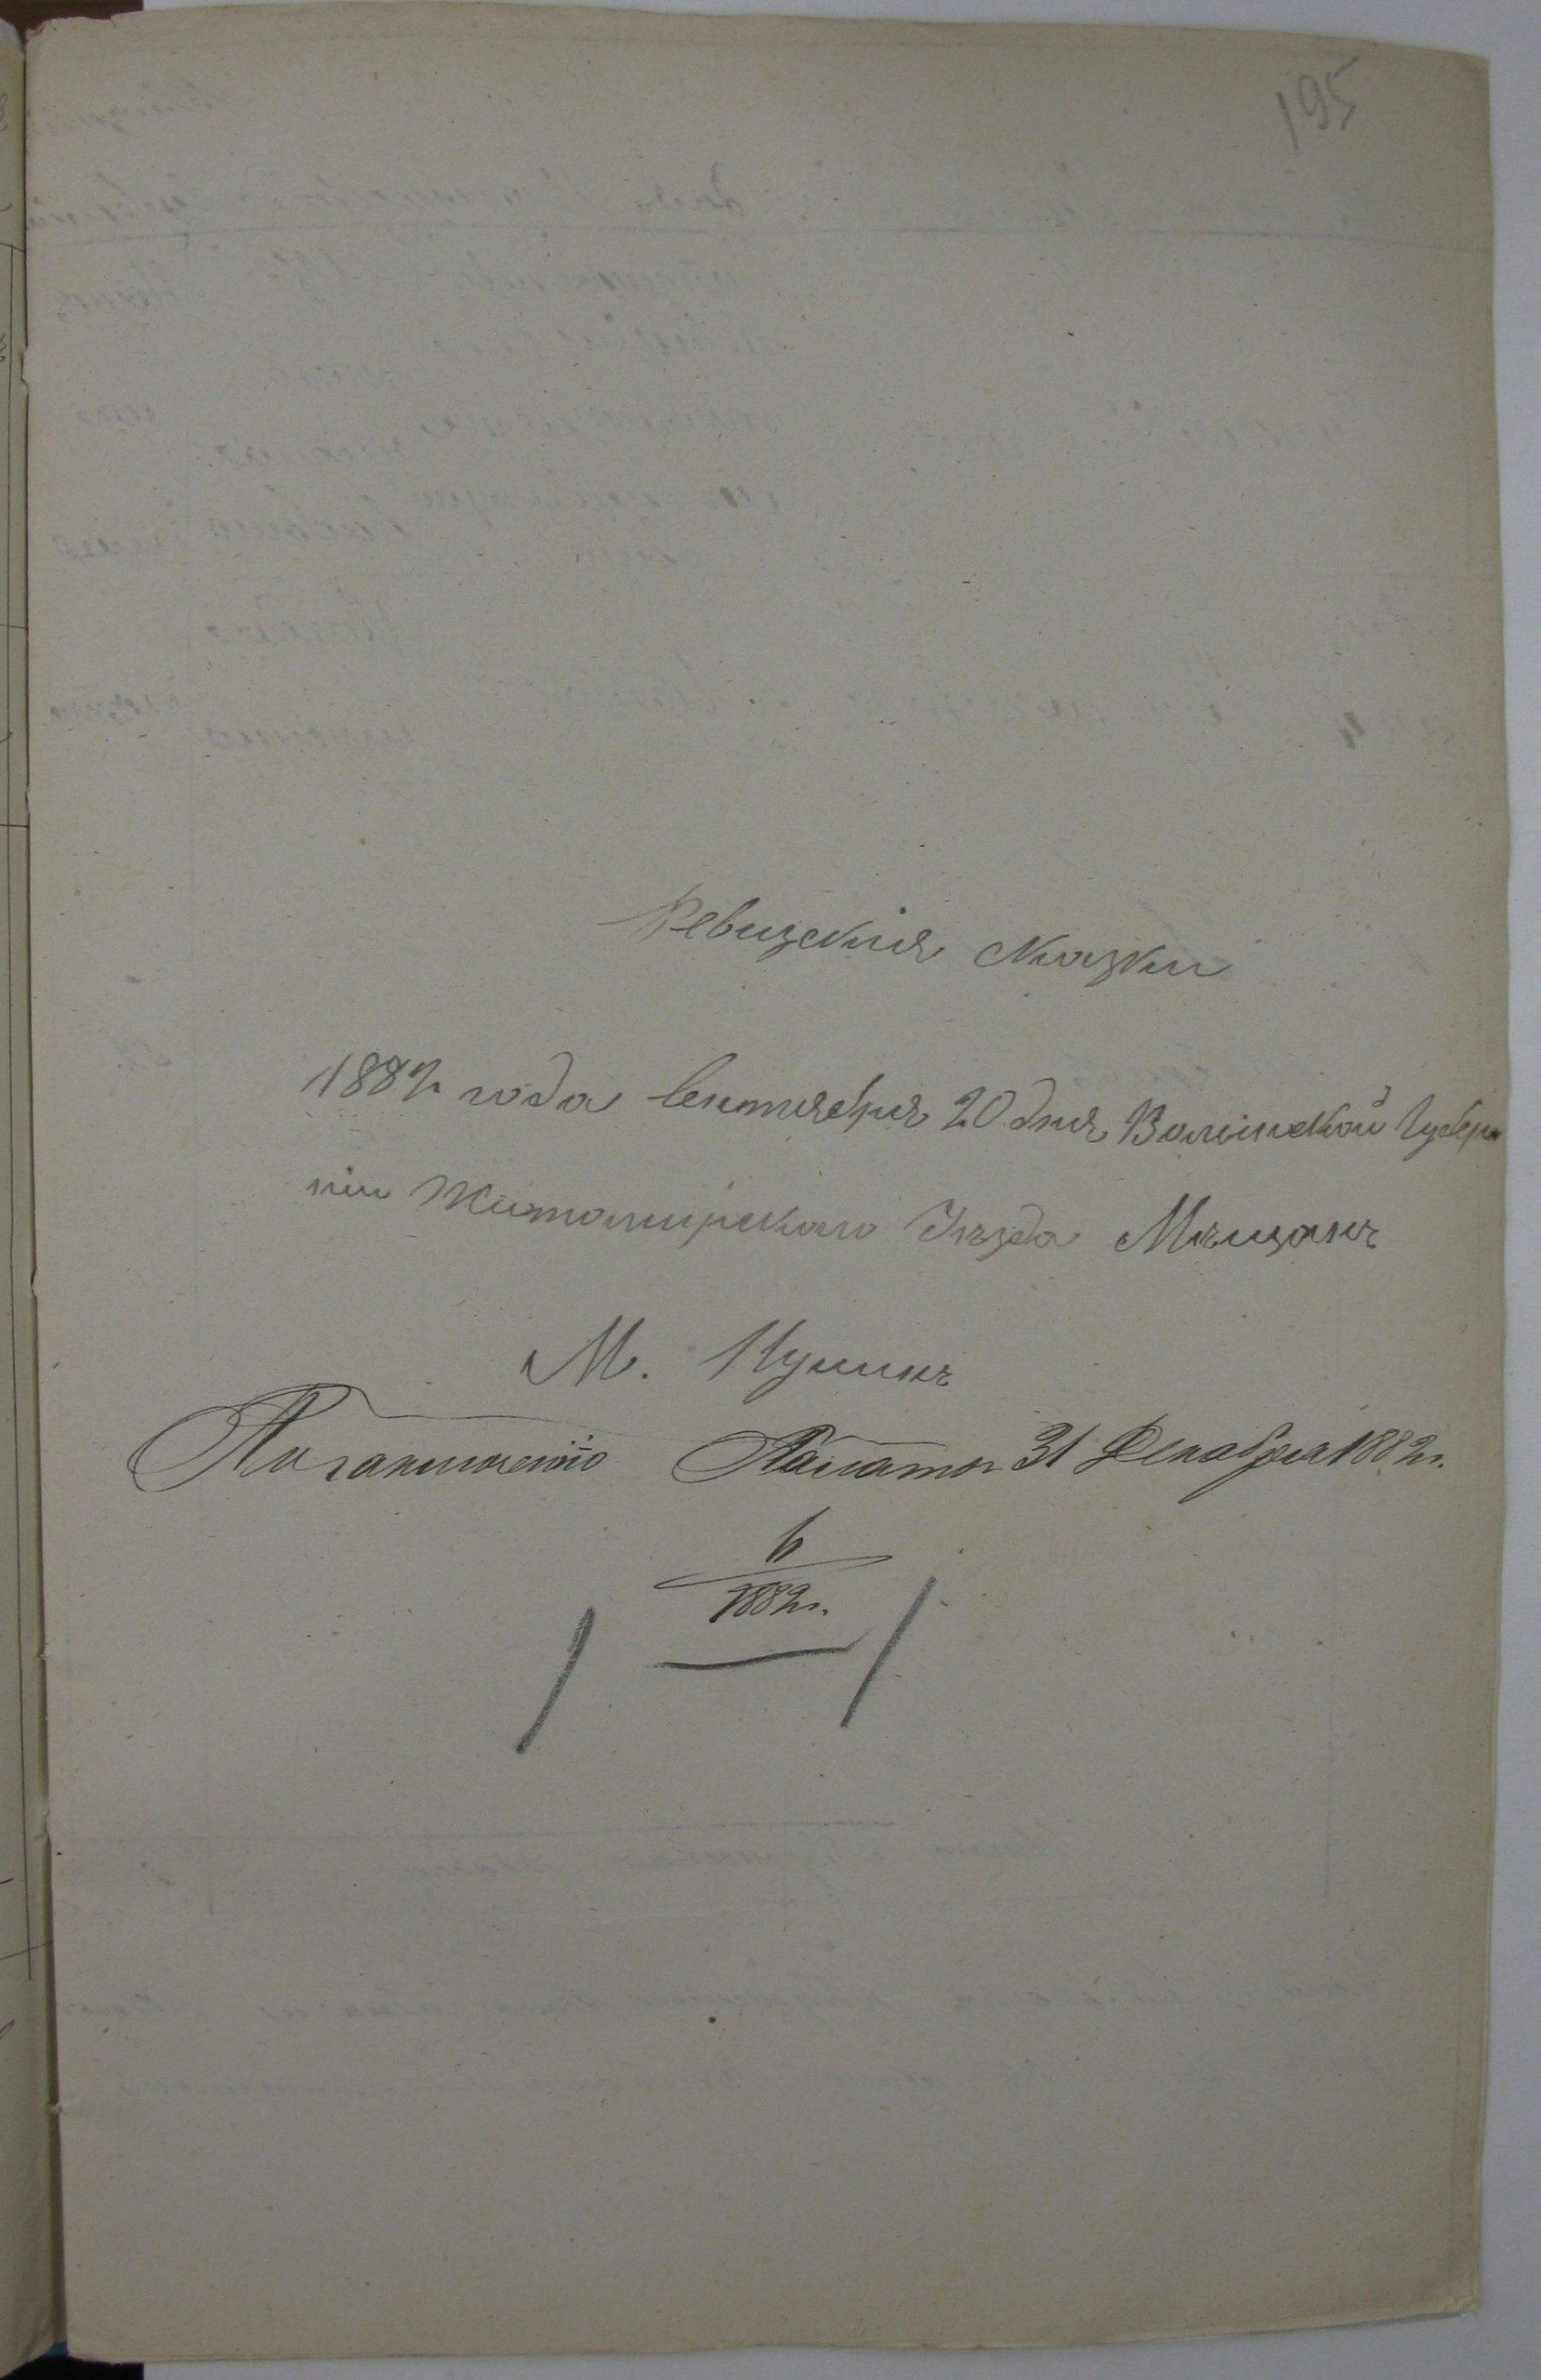 195
Ревизскія сказки
1882 года Сентября 20 дня Волынской Губер
ніи Житомирскаго Уѣзда Мѣщанъ
М. Пулинъ
По заключенію Палаты 31 Декабря 1882 г.
6
1882 г.